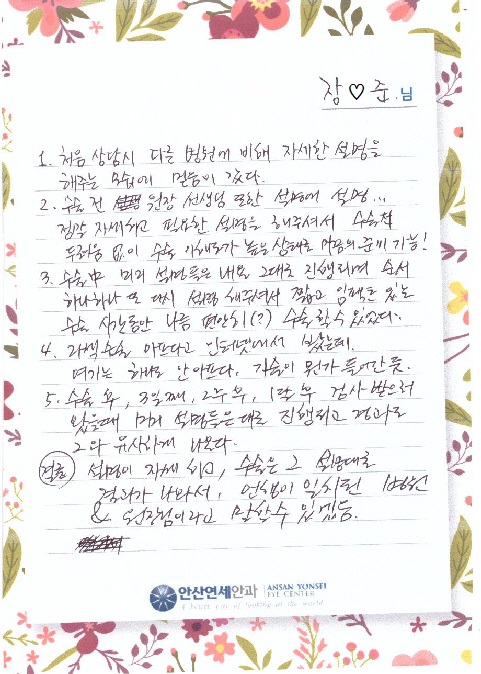 장♡준.님
1. 처음 상담시 다른 병원에 비해 자세한 설명을
해주는 모습에 믿음이 갔다.
2. 수술 전 원장 선생님 또한 설명에 설명...
정확 자세하고 필요한 설명을 해주셔서 수술적
두려움 없이 수술 이해도가 높은 상태로 마음의 준비 가능!
3. 수술中 미리 설명들은 내용 그대로 진행되며 순서
하나하나 또 다시 설명 해주셔서 짧고 임팩트 있는
수술 시간동안 나름 편안히(?) 수술할수 있었다.
4. 라섹수술 아프다고 인터넷에서 봤는데.
여기는 하나도 안아프다. 기술이 뭔가 들어간듯.
5. 수술 후, 3일째, 2주후, 1달 후 검사 받으러
왔을때 1거의 설명들은대로 진행되고 결과도
2와 유사하게 나온다.
결론 설명이 자세하고, 수술은 그 설명대로
결과가 나와서, 언행이 일치된 병원
& 원장님이라고 말할수 있겠음.
안산연세안과 ANSAN YONSEI
EYE CENTER
A better way of looking at the world